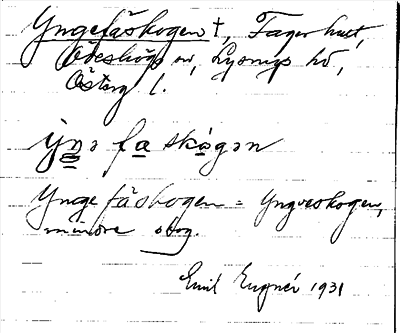 Yngefäskogen †, Fagerhult,
Ödeshögs sn, Lysings hd,
Östergl.
yŋə fa skógən
Ynge fäskogen = Yngveskogen,
mindre skog.
Emil Eugnér 1931